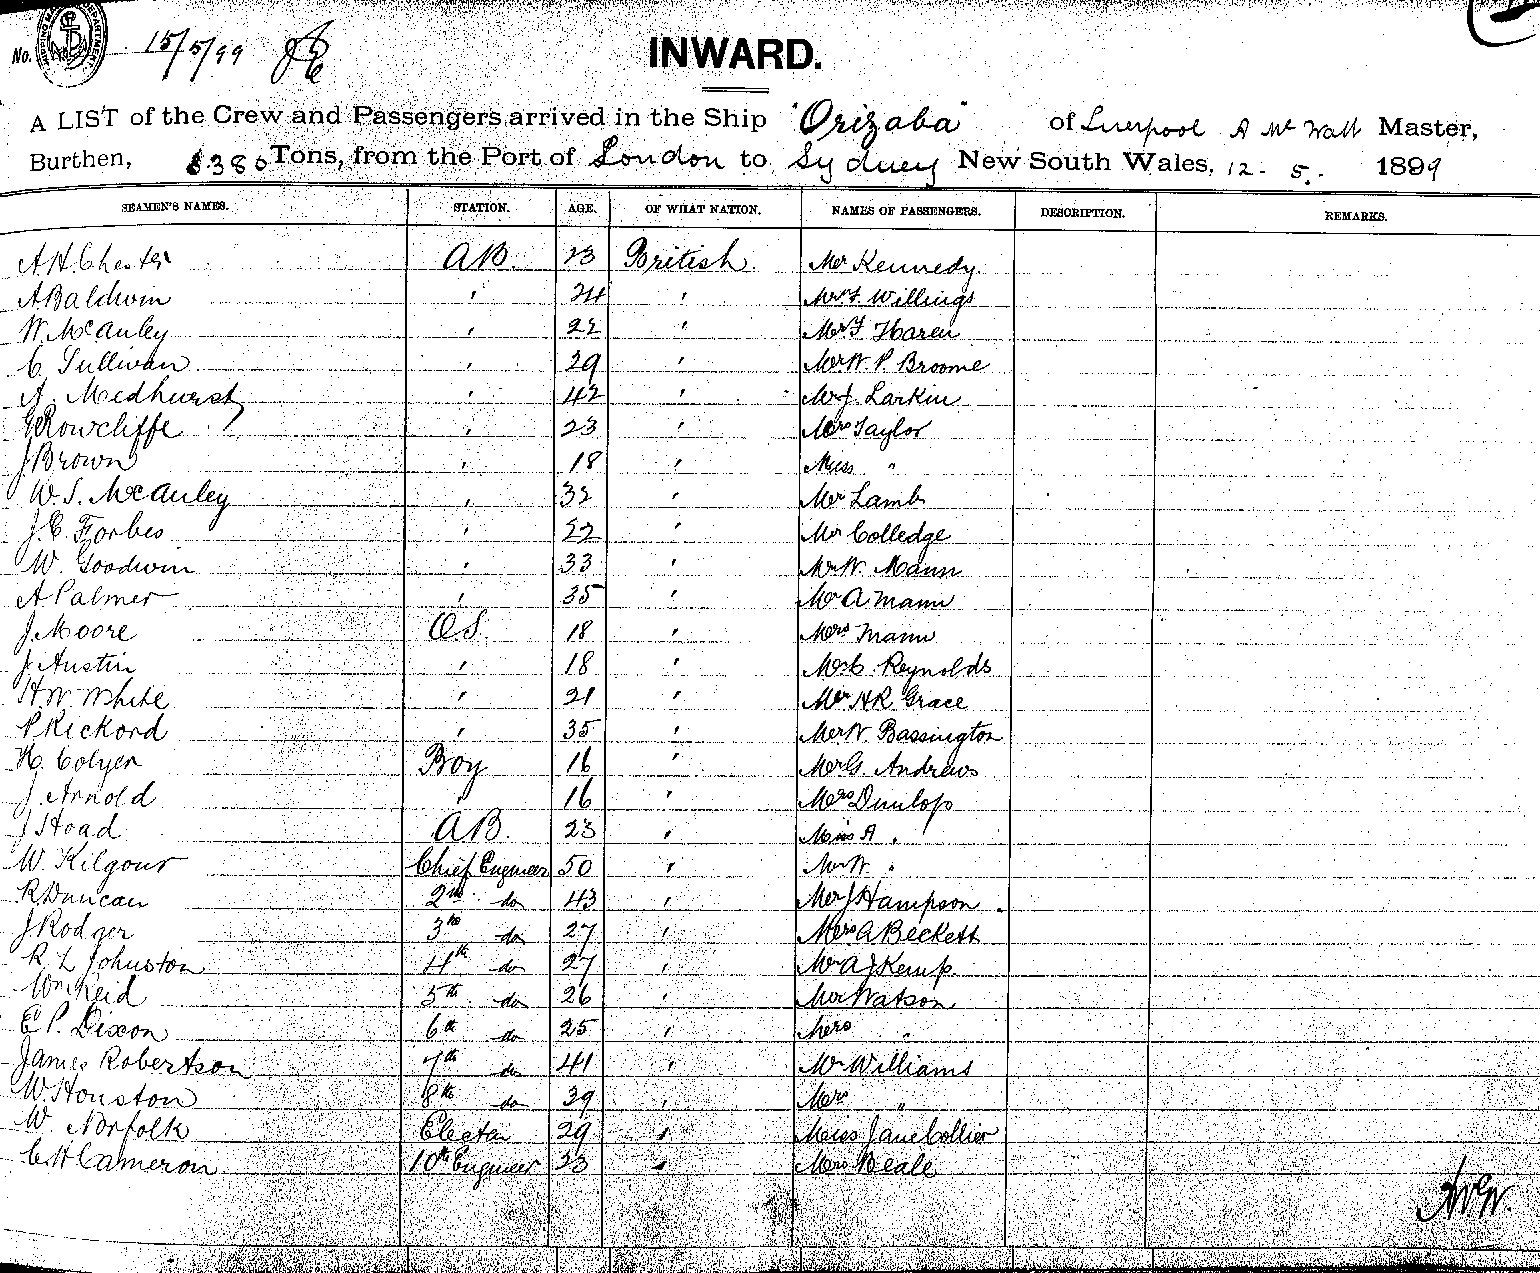 No. 15/5/99
INWARD.
A LIST of the Crew and Passengers arrived in the Ship "Orizaba" of Liverpool A Mc Watt Master,
Burthen, 6380 Tons, from the Port of London to Sydney New South Wales, 12 - 5 - 1899
SEAMEN'S NAMES. STATION. AGE. OF WHAT NATION. NAMES OF PASSENGERS. DESCRIPTION. REMARKS.
A H Chester AB. 23 British Mr Kennedy
A Baldwin " 24 " Mr F Willings
W. McAuley " 22 " Mr F Haren
C. Sullivan " 29 " Mr W. P. Broome
A. Medhurst " 42 " Mr J. Larkin
G Rowcliffe " 23 " Mrs Taylor
J Brown " 18 " Miss "
W. S. McAuley " 32 " Mr Lamb
J. C. Forbes " 22 " Mr Colledge
W. Goodwin " 33 " Mr W. Mann
A Palmer " 35 " Mr A. Mann
J. Moore OS. 18 " Mrs Mann
J. Austin " 18 " Mr C. Reynolds
H. W. White " 21 " Mr H R. Grace
P Rickord " 35 " Mr W. Bassington
H. Colyer Boy 16 " Mr G. Andrews
J. Arnold " 16 " Mrs Dunlop
J Hoad AB. 23 " Miss A "
W. Kilgour Chief Engineer 50 " Mr W. "
R Duncan 2nd do 43 " Mr J Hampson
J Rodger 3rd do 27 " Mrs A Beckett
R. L Johnston 4th do 27 " Mr A J Kemp.
Wm Reid 5th do 26 " Mr Watson
E P. Dixon 6th do 25 " Mrs "
James Robertson 7th do 41 " Mr Williams
W. Houston 8th do 39 " Mrs "
W. Norfolk Electn 29 " Miss Jane Collier
C H Cameron 10th Engineer 23 " Mrs Beale